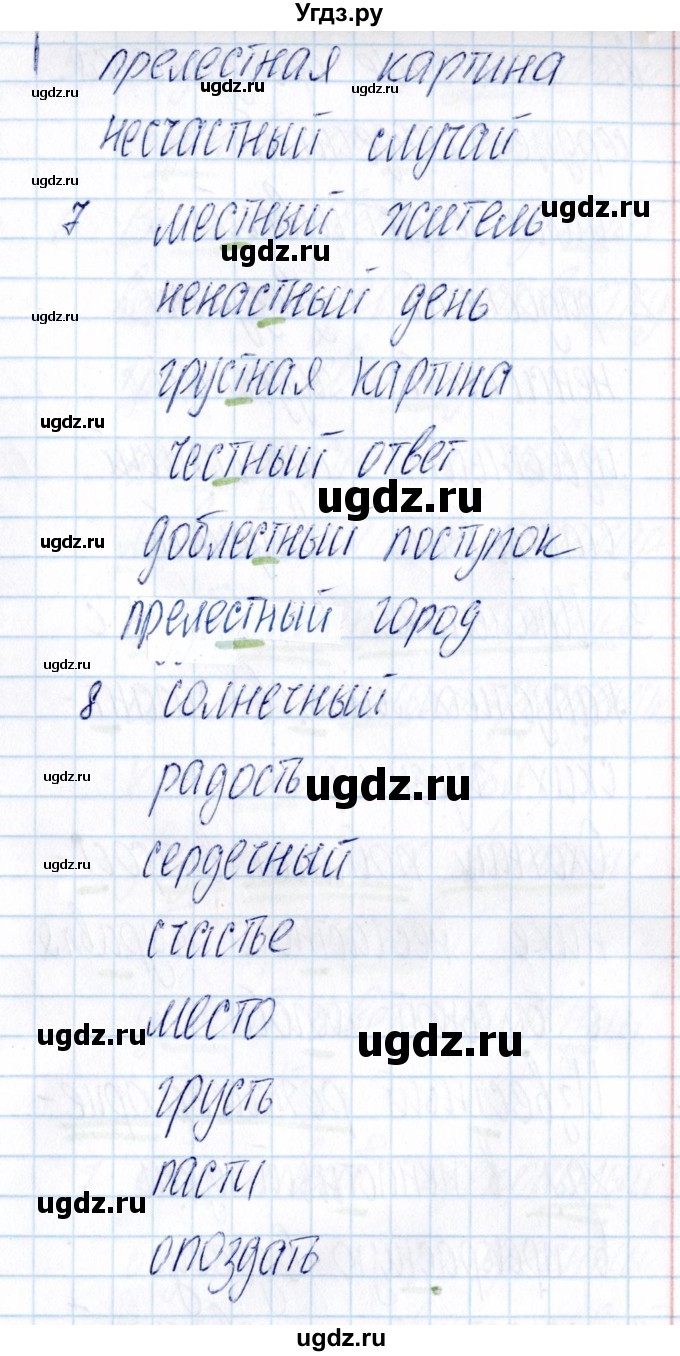 Угдз.ру
прелестная картина
ugdz.ru ugdz.ru ugdz.ru
несчастный случай
ugdz.ru
7 местный житель
ugdz.ru
ugdz.ru
ненастный день
ugdz.ru
грустная картина
ugdz.ru
честный ответ
ugdz.ru
доблестный поступок
ugdz.ru
прелестный город
ugdz.ru
8 солнечный
радость
ugdz.ru ugdz.ru
сердечный
ugdz.ru
счастье
место
ugdz.ru ugdz.ru
грусть
пасти
ugdz.ru
опоздать
ugdz.ru